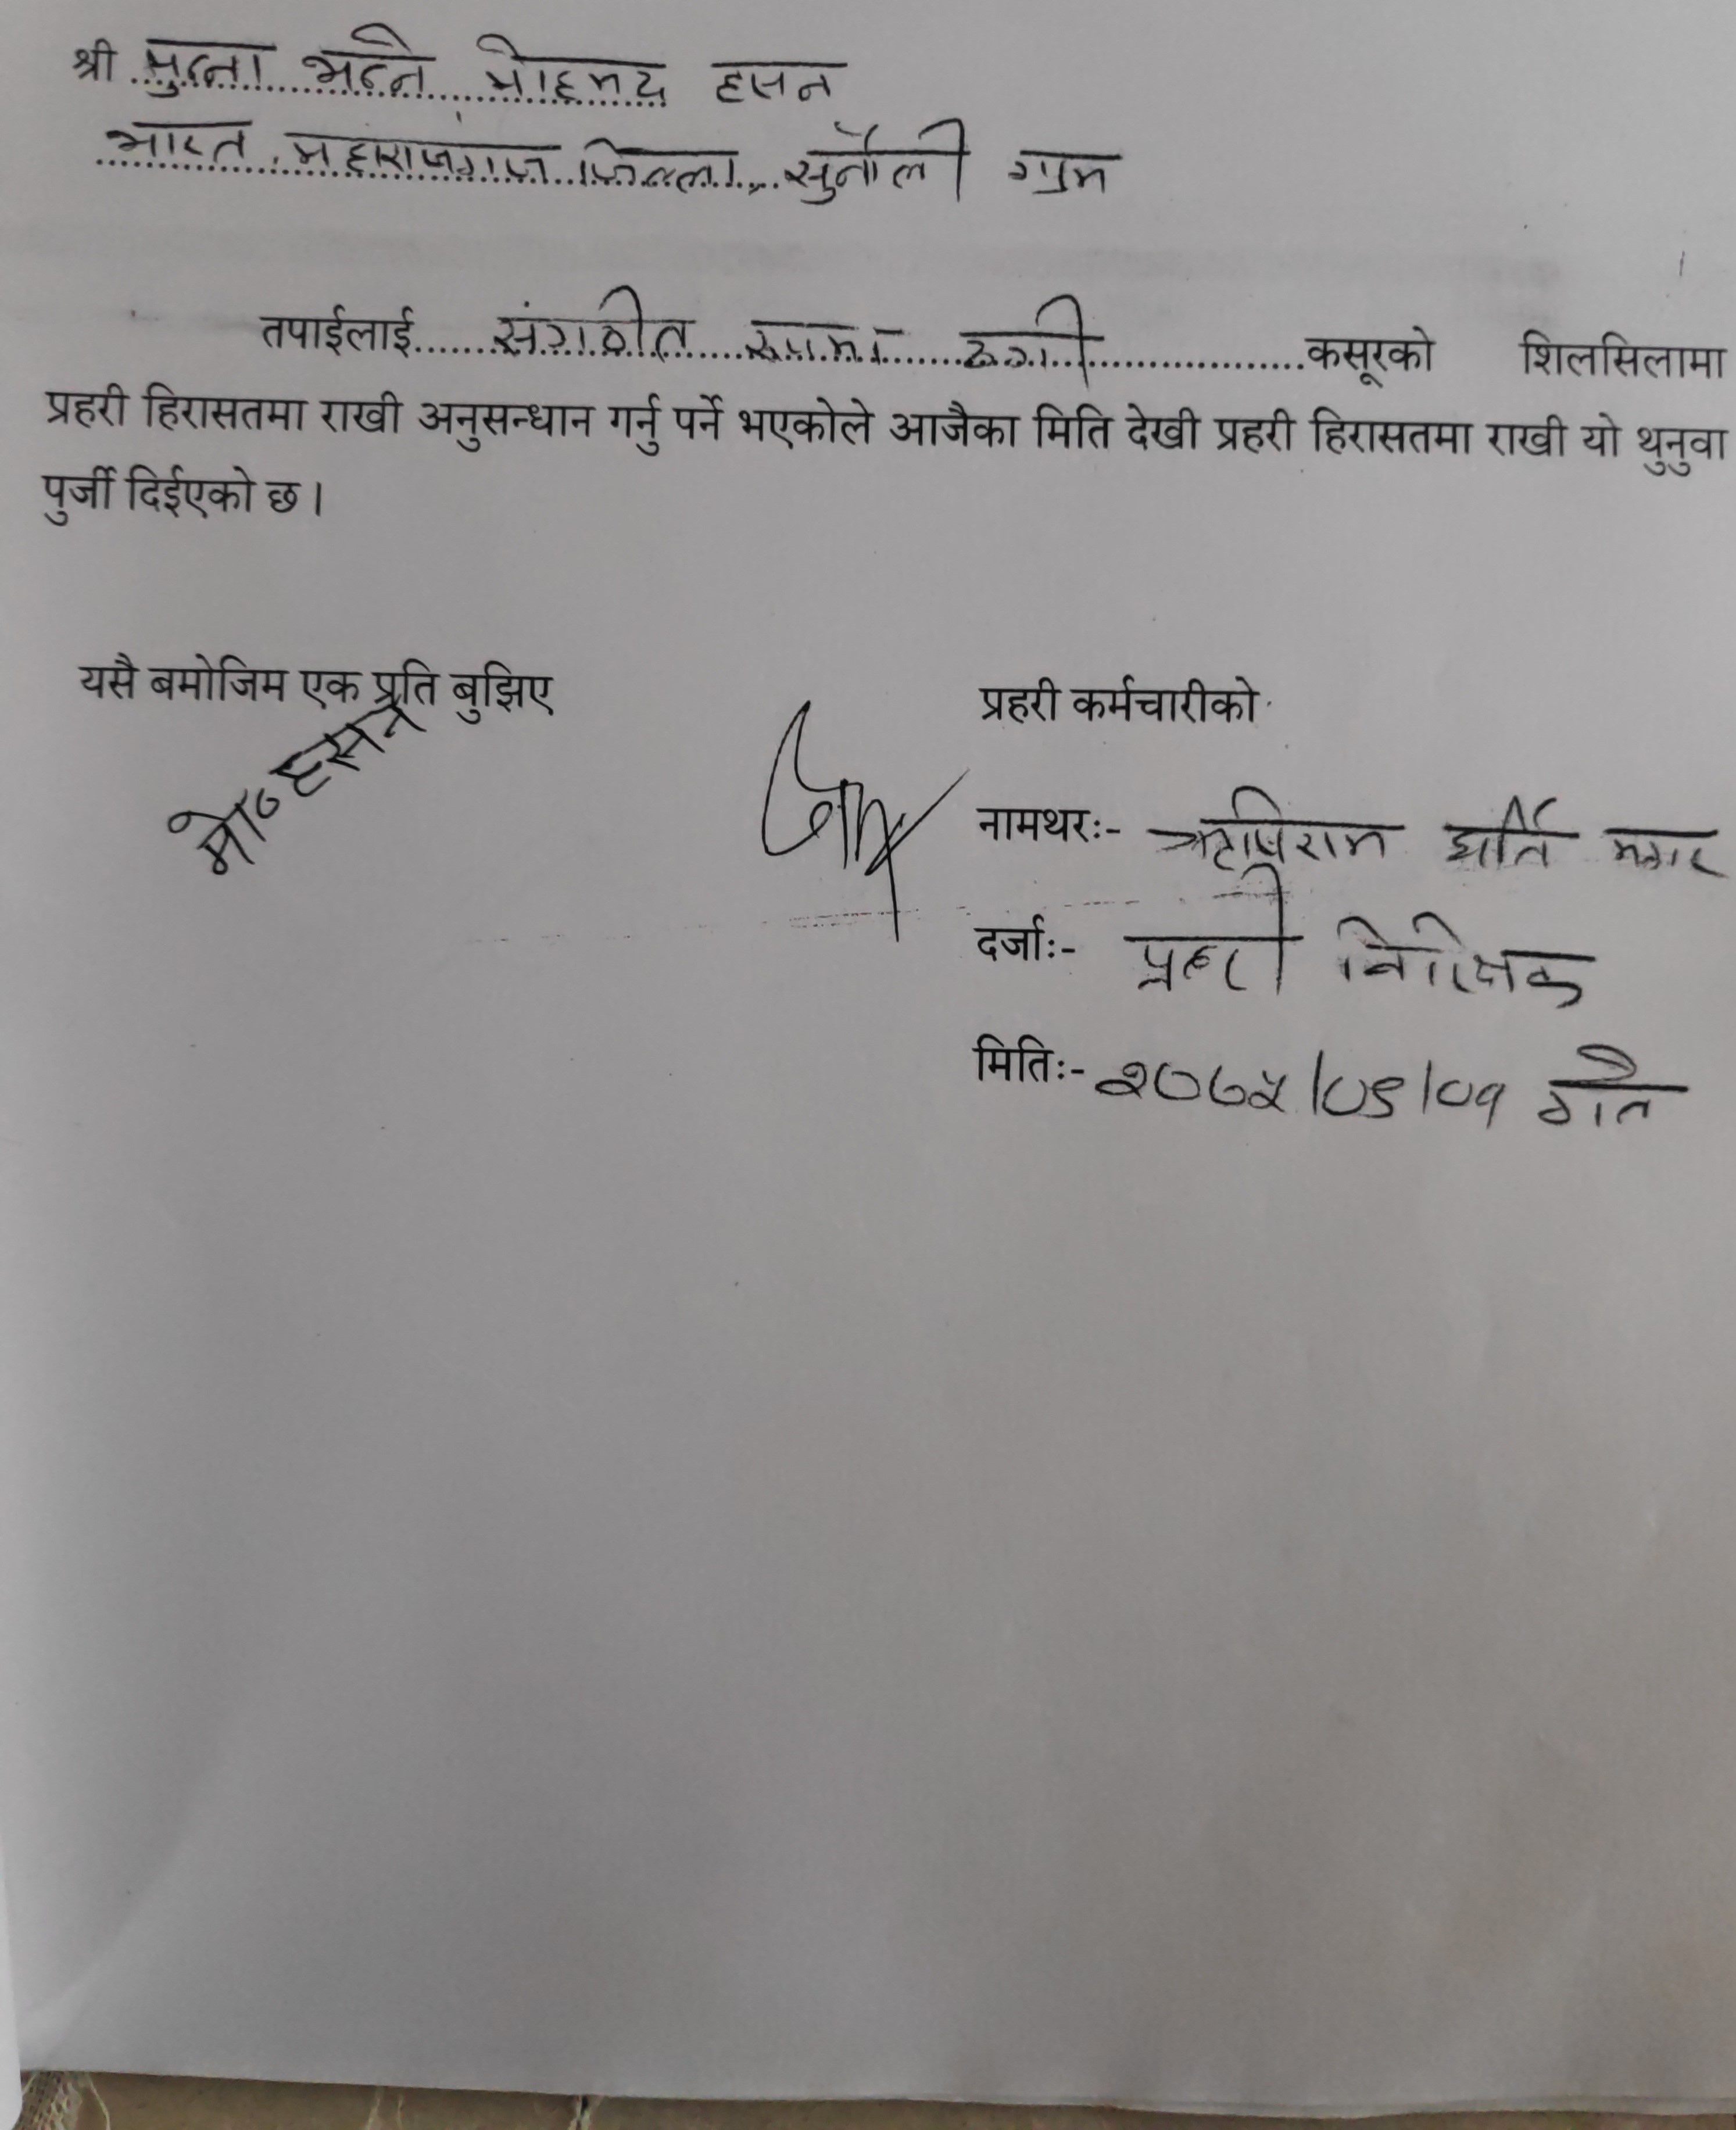 श्री मुन्ना भन्ने मोहमद हसन
भारत महाराजगंज जिल्ला, सुनौली गाम
तपाईलाई......संगठीत रुपमा ठगी..................कसूरको शिलसिलामा
प्रहरी हिरासतमा राखी अनुसन्धान गर्नु पर्ने भएकोले आजैका मिति देखी प्रहरी हिरासतमा राखी यो थुनुवा
पुर्जी दिईएको छ।
यसै बमोजिम एक प्रति बुझिए
मो० हसन
प्रहरी कर्मचारीको
नामथरः- ऋषिराम घर्ति मगर
दर्जाः- प्रहरी निरिक्षक
मितिः- २०७५/०९/०१ गते